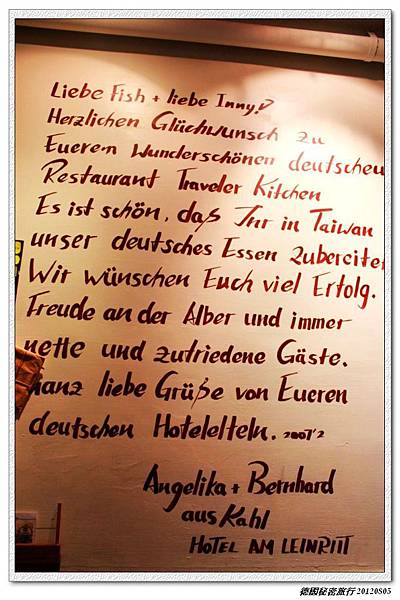 Liebe Fish + liebe Inny!
Herzlichen Glückwunsch zu
Eueren wunderschönen deutscheu
Restaurant Traveler Kitchen
Es ist schön, daß Ihr in Taiwan
unser deutsches Essen zubereitet
Wir wünschen Euch viel Erfolg.
Freude an der Alber und immer
nette und zufriedene Gäste.
Ganz liebe Grüße von Eueren
deutschen Hotelelteln. 2007'2
Angelika + Bernhard
aus Kahl
HOTEL AM LEINRITT
德國秘密旅行 20120805